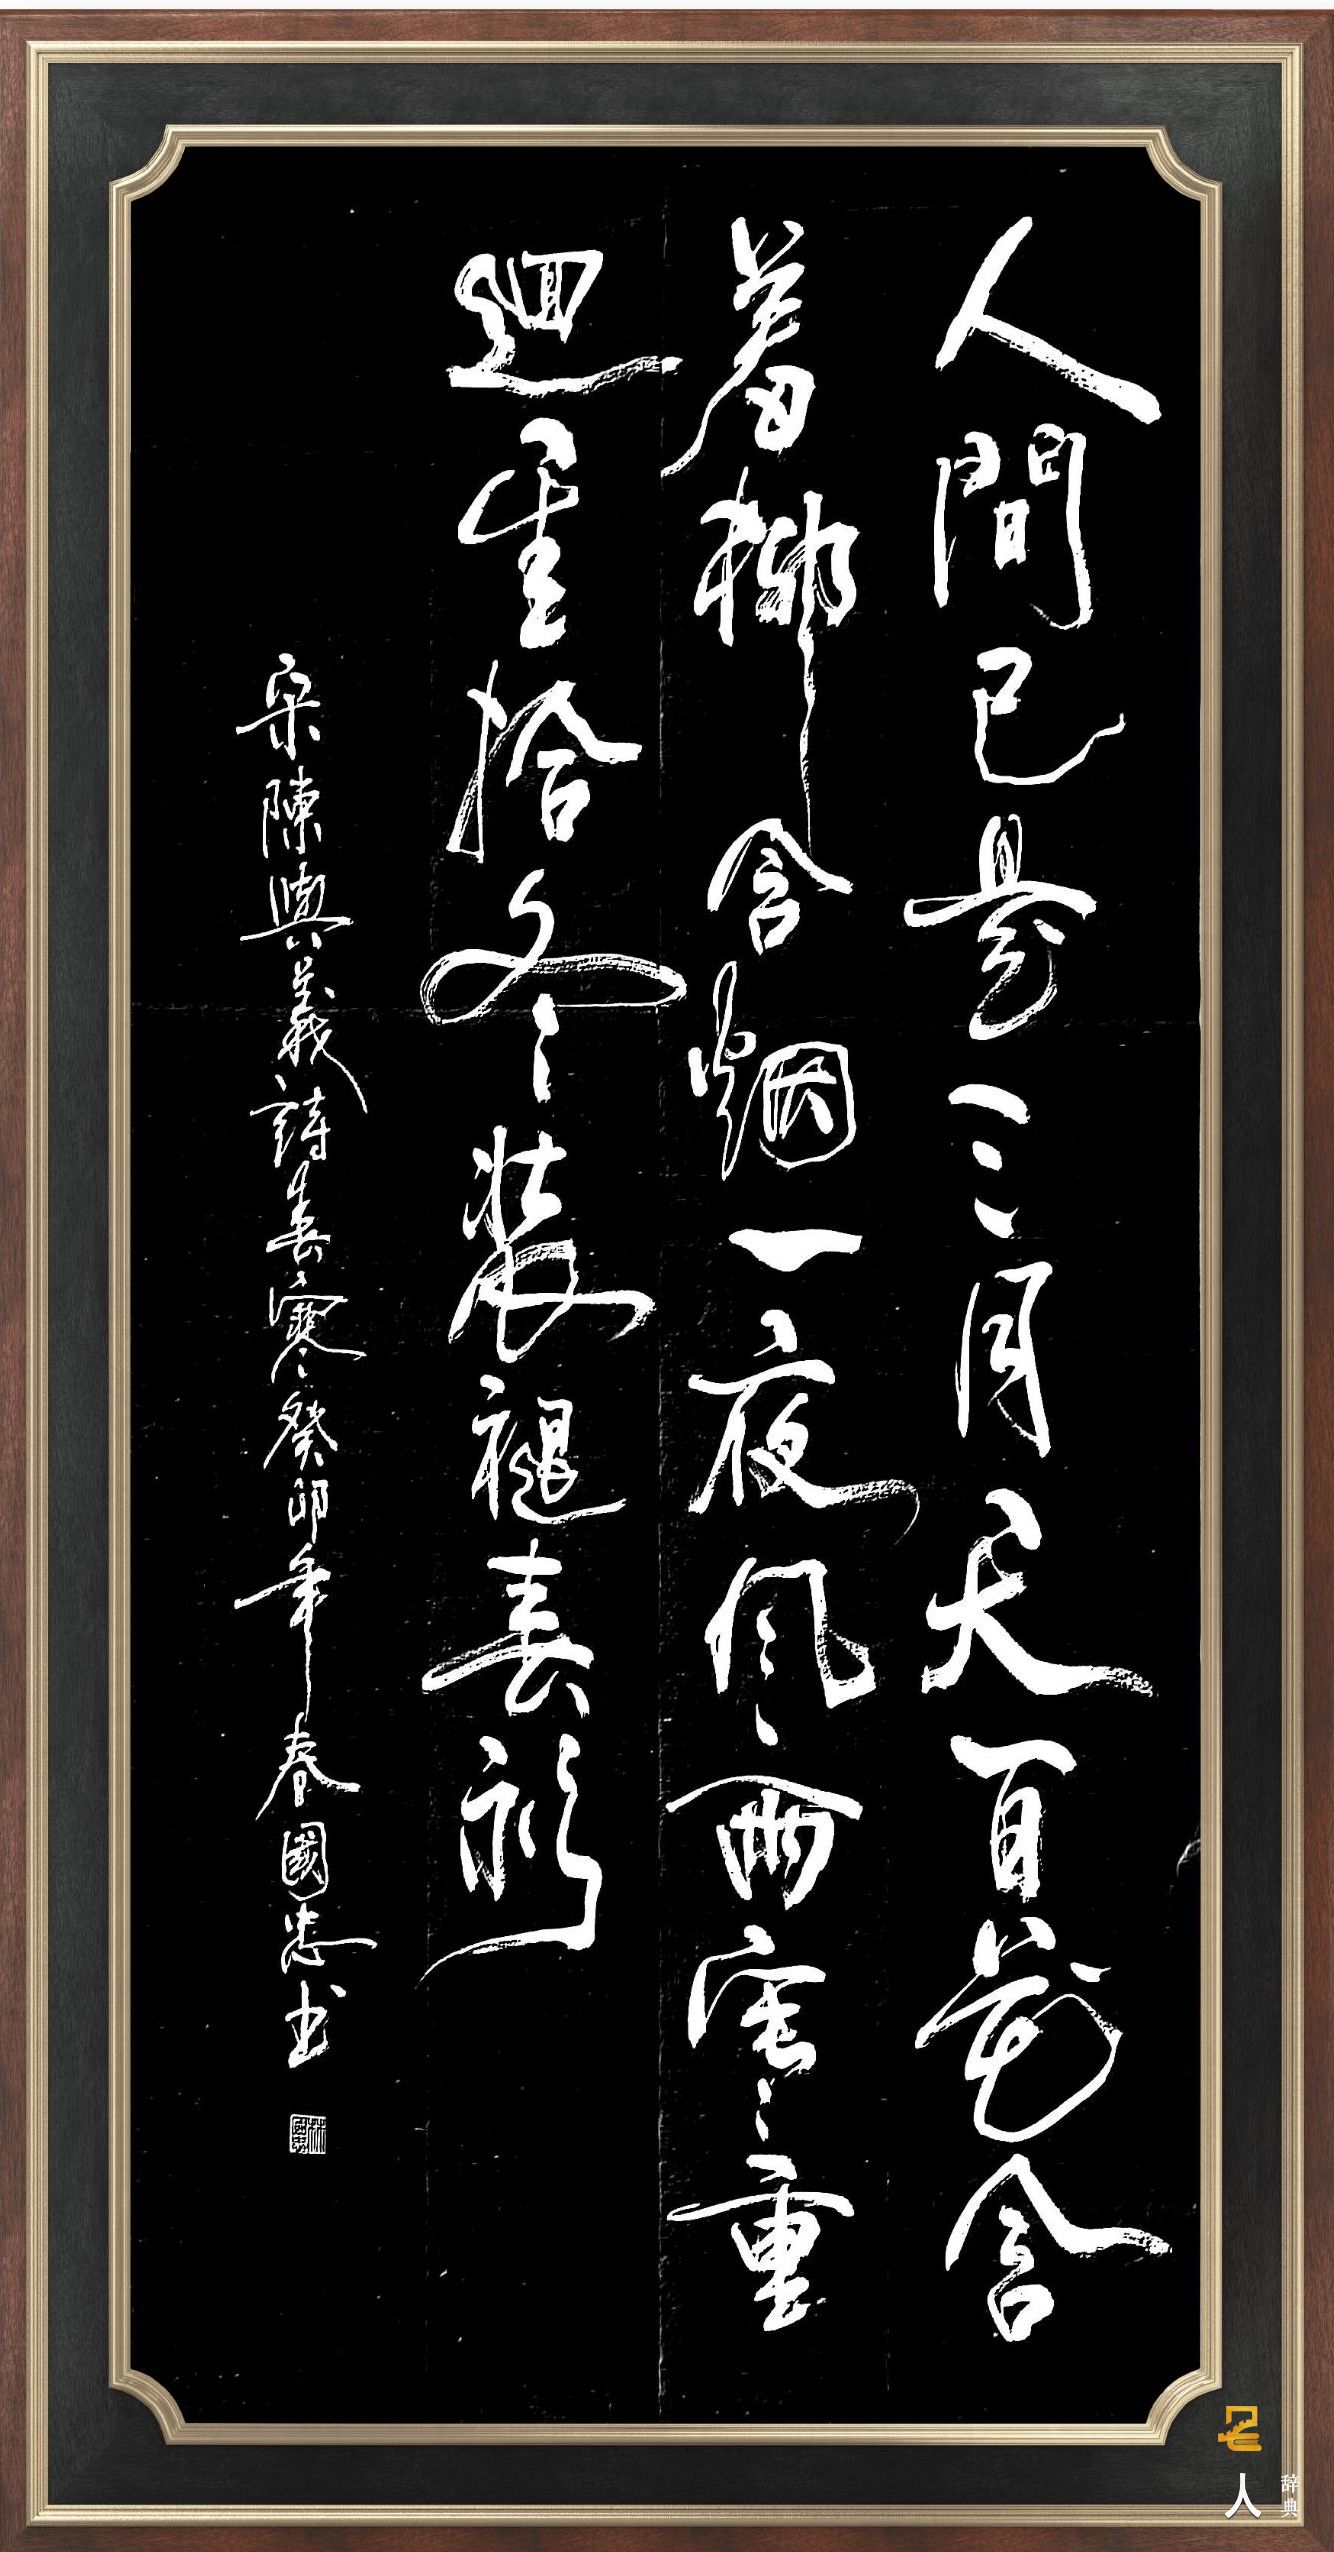 人間已是三月天百花含
著柳含烟一夜風雨寒重
迴重拾冬裝褪春衫
宋陳與義詩春寒癸卯年春國忠书
人
辞典